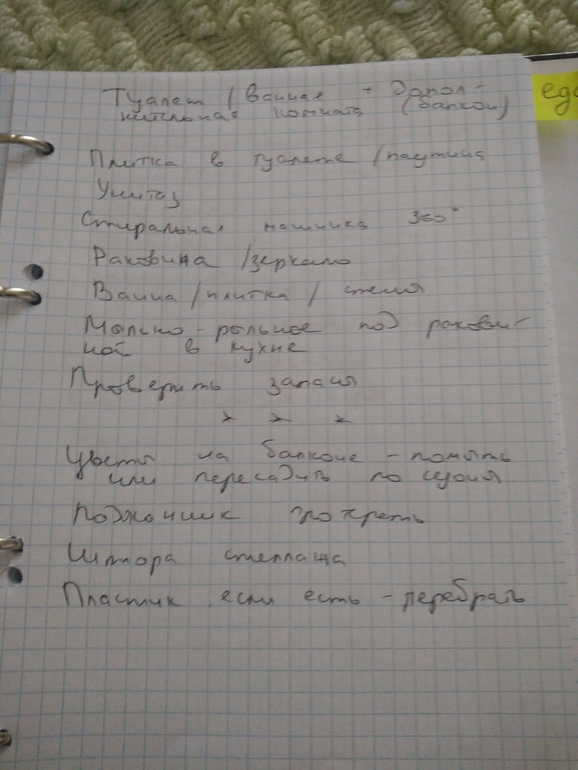 Туалет / ванная + Допол-
нительная комната (балкон)
еда
Плитка в туалете / паутина
Унитаз
Стиральная машинка 360°
Раковина / зеркало
Ванна / плитка / стена
Мыльно-рыльное под ракови-
ной в кухне
Проверить запасы
Цветы на балконе - помыть
или пересадить по сезону
Поджопник
Штора стеллажа
Пластик если есть - перебрать